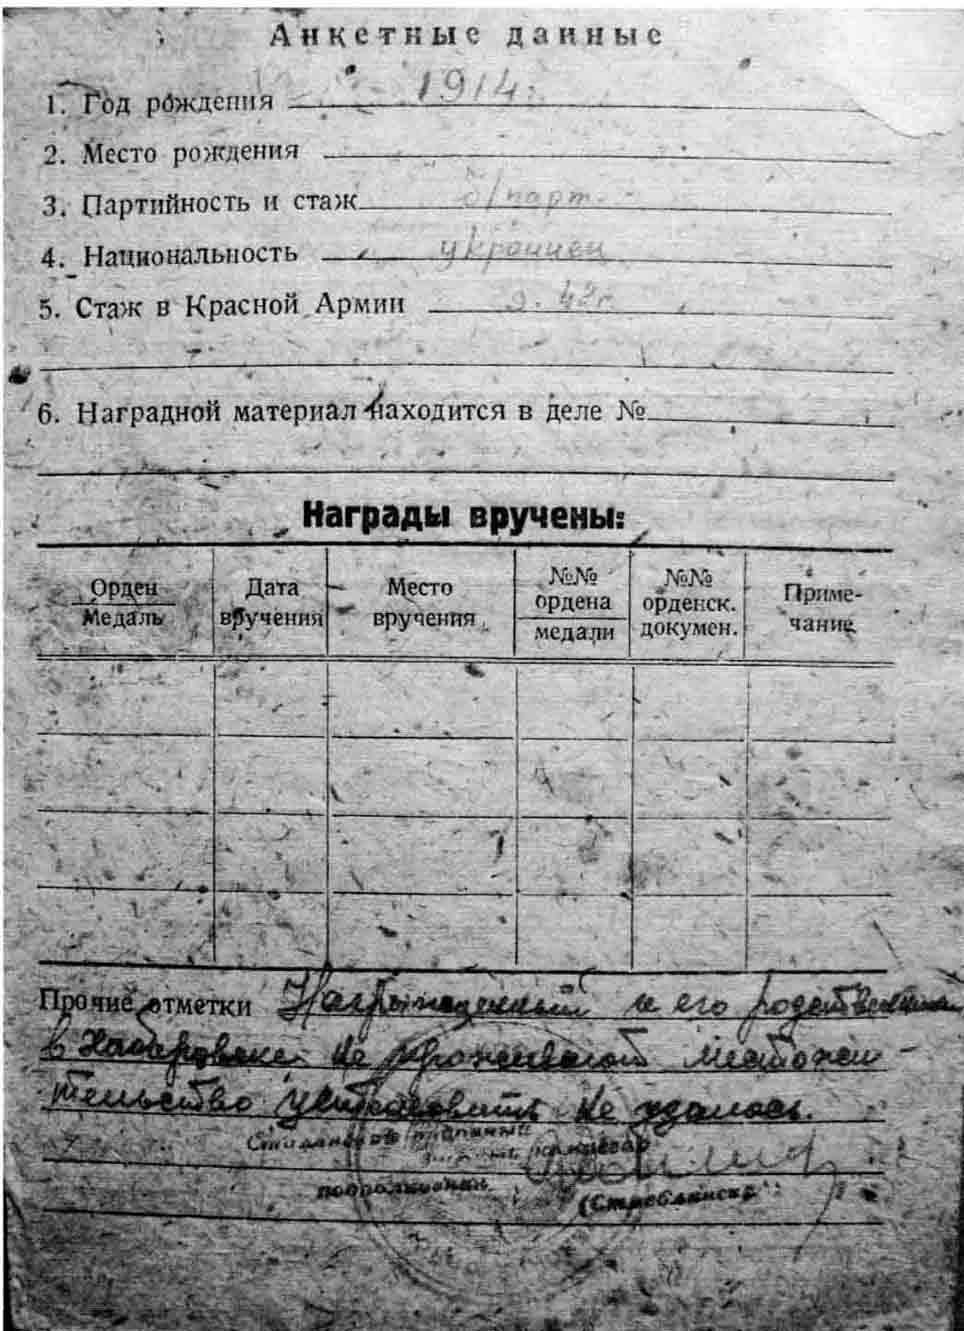 Анкетные данные
1. Год рождения 1914.
2. Место рождения
3. Партийность и стаж б/парт.
4. Национальность украинец
5. Стаж в Красной Армии с 42г.
6. Наградной материал находится в деле №
Награды вручены:
Орден
Медаль
Дата
вручения
Место
вручения
№№
ордена
медали
№№
орденск.
докумен.
Приме-
чание
Прочие отметки Награжденный и его родственники
в Хабаровске не проживают местожи-
тельство установить не удалось.
подполковник